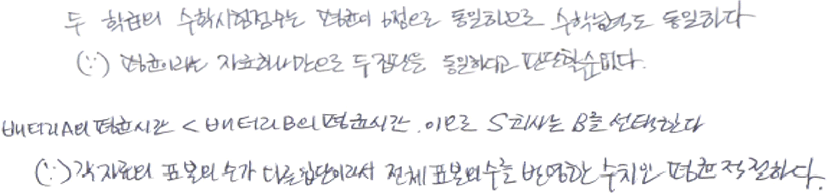 두 학급의 수학시험점수는 평균이 6점으로 동일하므로 수학능력도 동일하다
(∵) 평균이라는 자료하나만으로 두집단을 동일하다고 판단할수없다.
배터리A의 평균시간 < 배터리B의 평균시간. 이므로 S회사는 B를 선택한다
(∵) 각 자료의 표본의 수가 다른집단이라서 전체 표본의수를 반영하는 수치인 평균 적절하다.